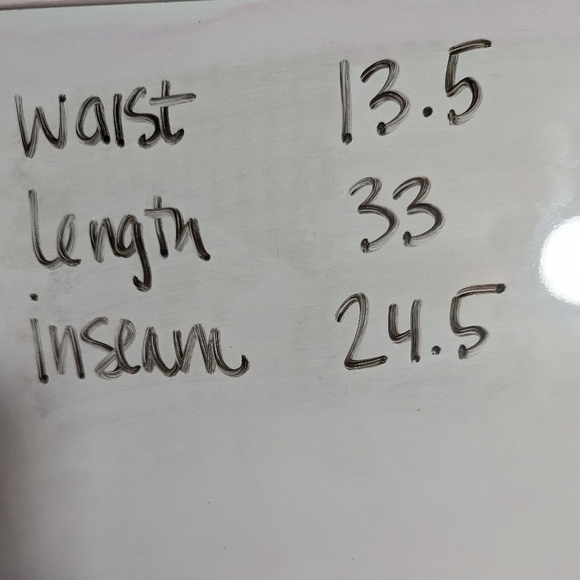 waist 13.5
length 33
inseam 24.5